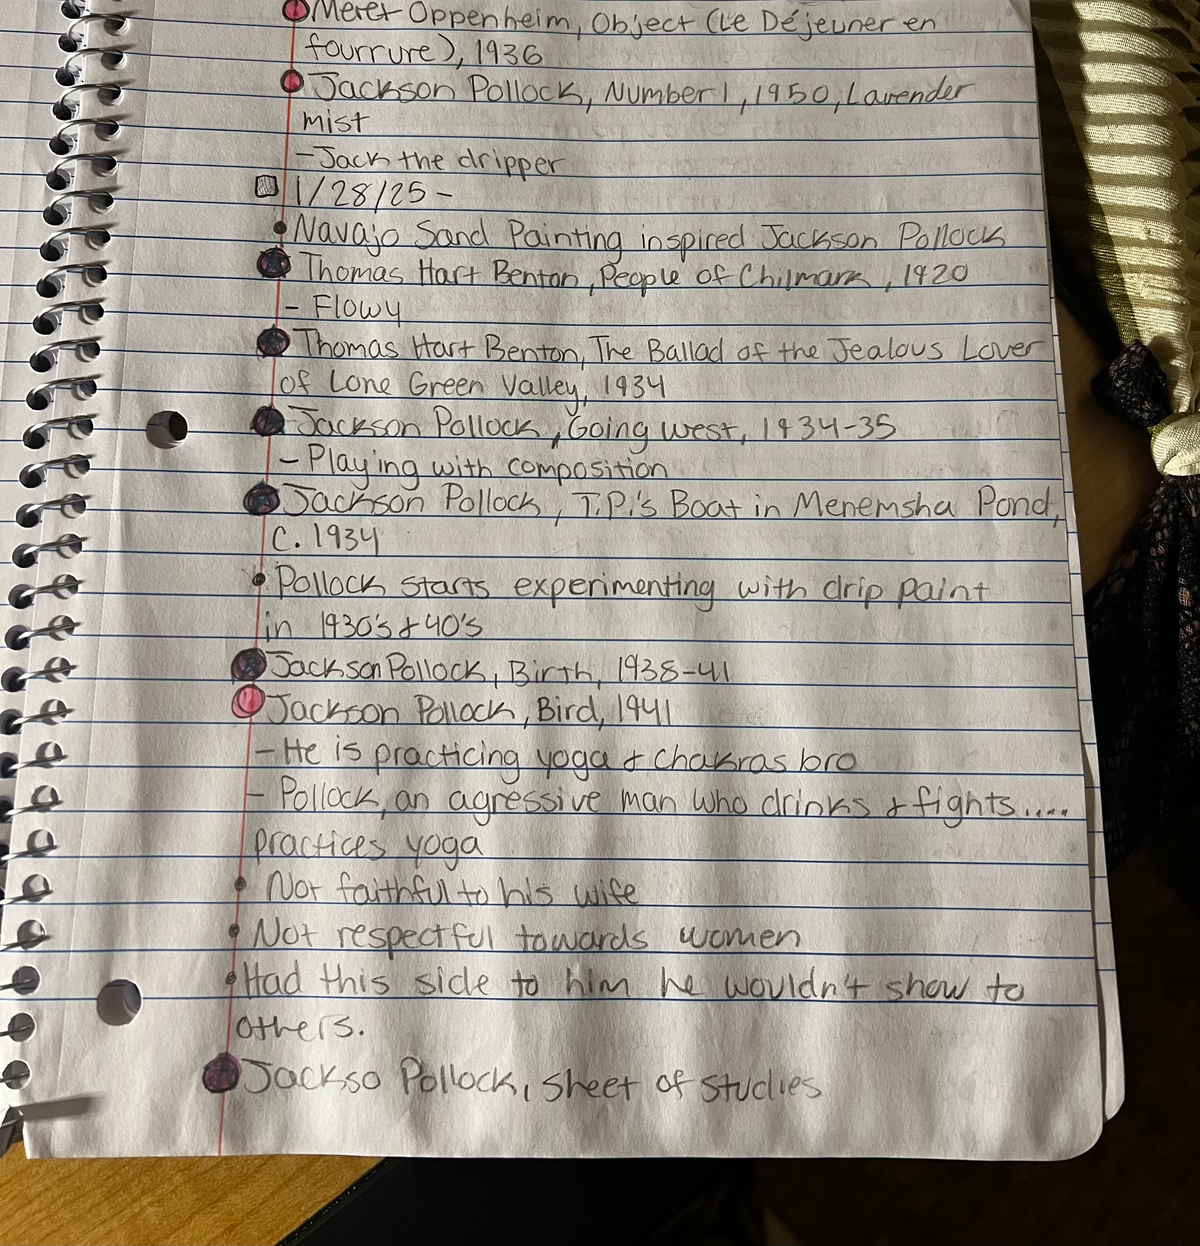 Meret Oppenheim, Object (Le Déjeuner en
fourrure), 1936
Jackson Pollock, Number 1, 1950, Lavender
mist
-Jack the dripper
1/28/25-
Navajo Sand Painting inspired Jackson Pollock
Thomas Hart Benton, People of Chilmark, 1920
- Flowy
Thomas Hart Benton, The Ballad of the Jealous Lover
of Lone Green Valley, 1934
Jackson Pollock, Going west, 1934-35
- Playing with composition
Jackson Pollock, T.P.'s Boat in Menemsha Pond,
C. 1934
Pollock starts experimenting with drip paint
in 1930's & 40's
Jackson Pollock, Birth, 1938-41
Jackson Pollock, Bird, 1941
- He is practicing yoga & chakras bro
- Pollock, an agressive man who drinks & fights.....
practices yoga
Not faithful to his wife
Not respectful towards women
Had this side to him he wouldn't show to
others.
Jackso Pollock, Sheet of Studies